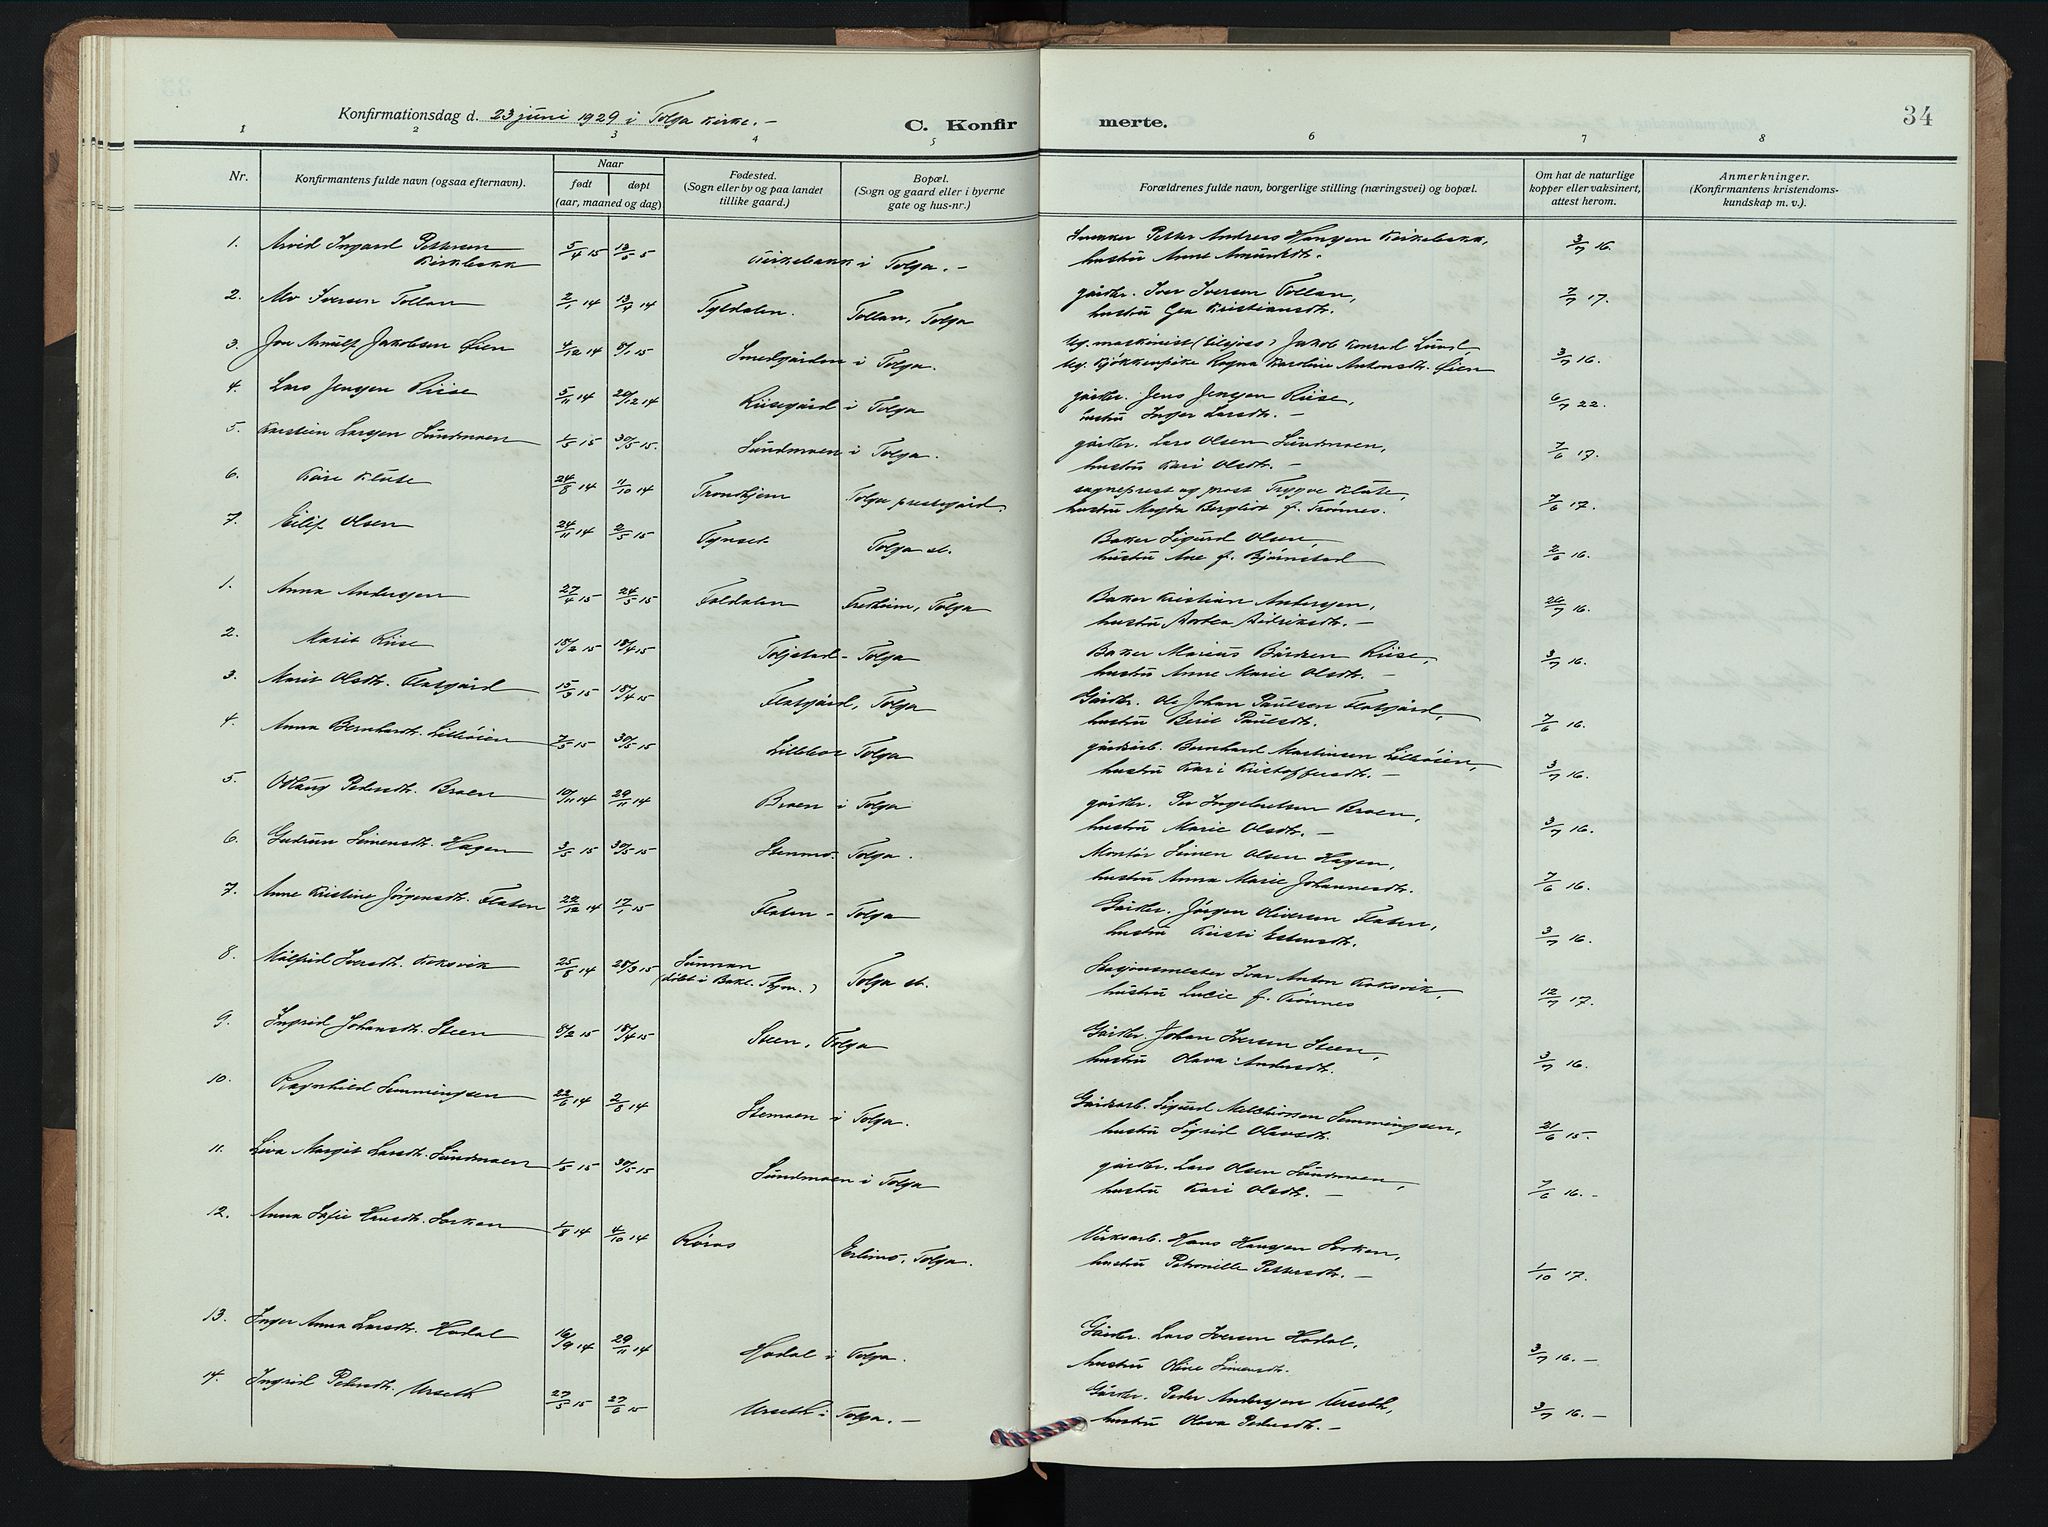 34
Konfirmationsdag d. 23 juni 1929 i Tolga kirke. -
C. Konfirmerte.
1 2 3 4 5 6 7 8
Nr.
Konfirmantens fulde navn (ogsaa efternavn).
Naar
født døpt
(aar, maaned og dag)
Fødested.
(Sogn eller by og paa landet
tillike gaard.)
Bopæl.
(Sogn og gaard eller i byerne
gate og hus-nr.)
Forældrenes fulde navn, borgerlige stilling (næringsvei) og bopæl.
Om hat de naturlige
kopper eller vaksinert,
attest herom.
Anmerkninger.
(Konfirmantens kristendoms-
kundskap m. v.).
1. Arvid Ingard Pettersen 5/4 15 13/5 5 Kirkebakk i Tolga. - Petter Andreas Hansen Kirkebakk, 3/7 16.
Kirkebakk hustru Anne Amundsdtr.
2. Alv Iversen Tollan 2/1 14 13/4 14 Tyldalen. Tollan, Tolga gårdbr. Iver Iversen Tollan, 7/7 17.
hustru Gea Kristiansdtr.
3. Jon Arnulf Jakobsen Øien 4/12 14 8/1 15 Smedgården i Tolga. Ug. maskinist (tilsjøss) Jakob Konrad Lund 3/7 16.
Ug. kjøkkenpike Ragna Karoline Antonsdtr. Øien
4. Lars Jensen Riise 5/11 14 20/12 14 Riisegård i Tolga gårdbr. Jens Jensen Riise, 6/7 22.
hustru Inger Larsdtr. -
5. Karstein Larssen Sundmoen 1/5 15 30/5 15. Sundmoen i Tolga. gårdbr. Lars Olsen Sundmoen, 7/6 17.
hustru Kari Olsdtr. -
6. Kåre Klüte 24/8 14 11/10 14 Trondhjem Tolga prestegård. sogneprest og prost Trygve Klüte, 7/6 17.
hustru Magda Bergliot f. Trønnes.
7. Eilif Olsen 24/11 14 2/5 15 Tynset Tolga st. Baker Sigurd Olsen, 2/6 16.
hustru Ane f. Bjørnstad
1. Anna Anderssen 27/4 15 24/5 15 Foldalen Fredheim, Tolga Baker Kristian Anderssen, 26/7 16.
hustru Dortea Didriksdtr. -
2. Marit Riise 18/2 15 18/4 15 Toljstad - Tolga Baker Marius Bårdsen Riise, 3/7 16.
hustru Anne Marie Olsdtr. -
3. Marit Olsdtr. Flatgård 15/3 15 18/4 15 Flatgård, Tolga Gårdbr. Ole Johan Paulsen Flatgård, 7/6 16.
hustru Berit Paulsdtr.
4. Anna Bernhardtr. Lilleøien 7/5 15 30/5 15 Tolga gårdarb. Bernhard Martinsen Lilleøien, 3/7 16.
hustru Kari Kristoffersdtr. -
5. Oddlaug Pedersdtr. Broen 10/11 14 29/11 14 Broen i Tolga gårdbr. Per Ingebretsen Broen, 3/7 16.
hustru Marie Olsdtr. -
6. Gudrun Simensdtr. Hagen 3/5 15 30/5 15 Stenmo. Tolga. Montør Simen Olsen Hagen, 7/6 16.
hustru Anna Marie Johannesdtr.
7. Anne Kristine Jørgensdtr. Flaten 22/12 14 17/1 15 Flaten - Tolga Gårdbr. Jørgen Oliversen Flaten, 3/7 16.
hustru Kirsti Estensdtr.
8. Målfrid Iversdtr. Koksvik 25/8 14 28/3 15 Sunnan Tolga st. Stasjonsmester Ivar Anton Koksvik, 12/7 17.
(døbt i Bakl. Thjm.) hustru Lucie f. Trønnes
9. Ingrid Johansdtr. Steen 8/2 15 18/4 15 Steen, Tolga Gårdbr. Johan Iversen Steen, 3/7 16.
hustru Olava Andersdtr.
10. Ragnhild Semmingsen 22/6 14 2/8 14 Stemoen i Tolga. Gårdarb. Sigurd Melkiorsen Semmingsen, 21/6 15.
hustru Sigrid Olausdtr.
11. Liva Margit Larsdtr. Sundmoen 1/5 15 30/5 15 Sundmoen i Tolga gårdbr. Lars Olsen Sundmoen, 7/6 16. -
hustru Kari Olsdtr. -
12. Anna Sofie Hansdtr. Sorken 1/8 14 4/10 14 Røros Erlimo, Tolga. Verksarb. Hans Hanssen Sorken, 1/10 17.
hustru Petronille Pettersdtr. -
13. Inger Anna Larsdtr. Hodal 16/9 14 29/11 14 Hodal i Tolga. Gårdbr. Lars Iversen Hodal, 3/7 16. -
hustru Oline Simensdtr.
14. Ingrid Pedersdtr. Urseth 27/5 15 27/6 15 Urseth i Tolga. - Gårdbr. Peder Anderssen Urseth, 3/7 16. -
hustru Olava Pedersdtr. -